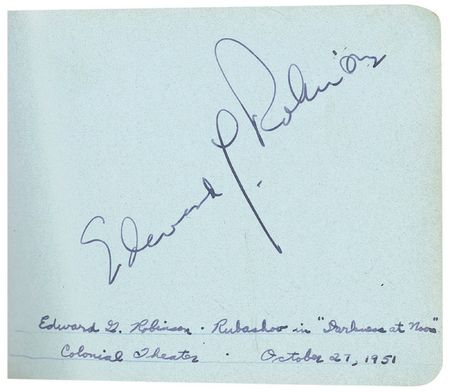 Edward G. Robinson
Edward G. Robinson · Rubashov in "Darkness at Noon"
Colonial Theater · October 27, 1951